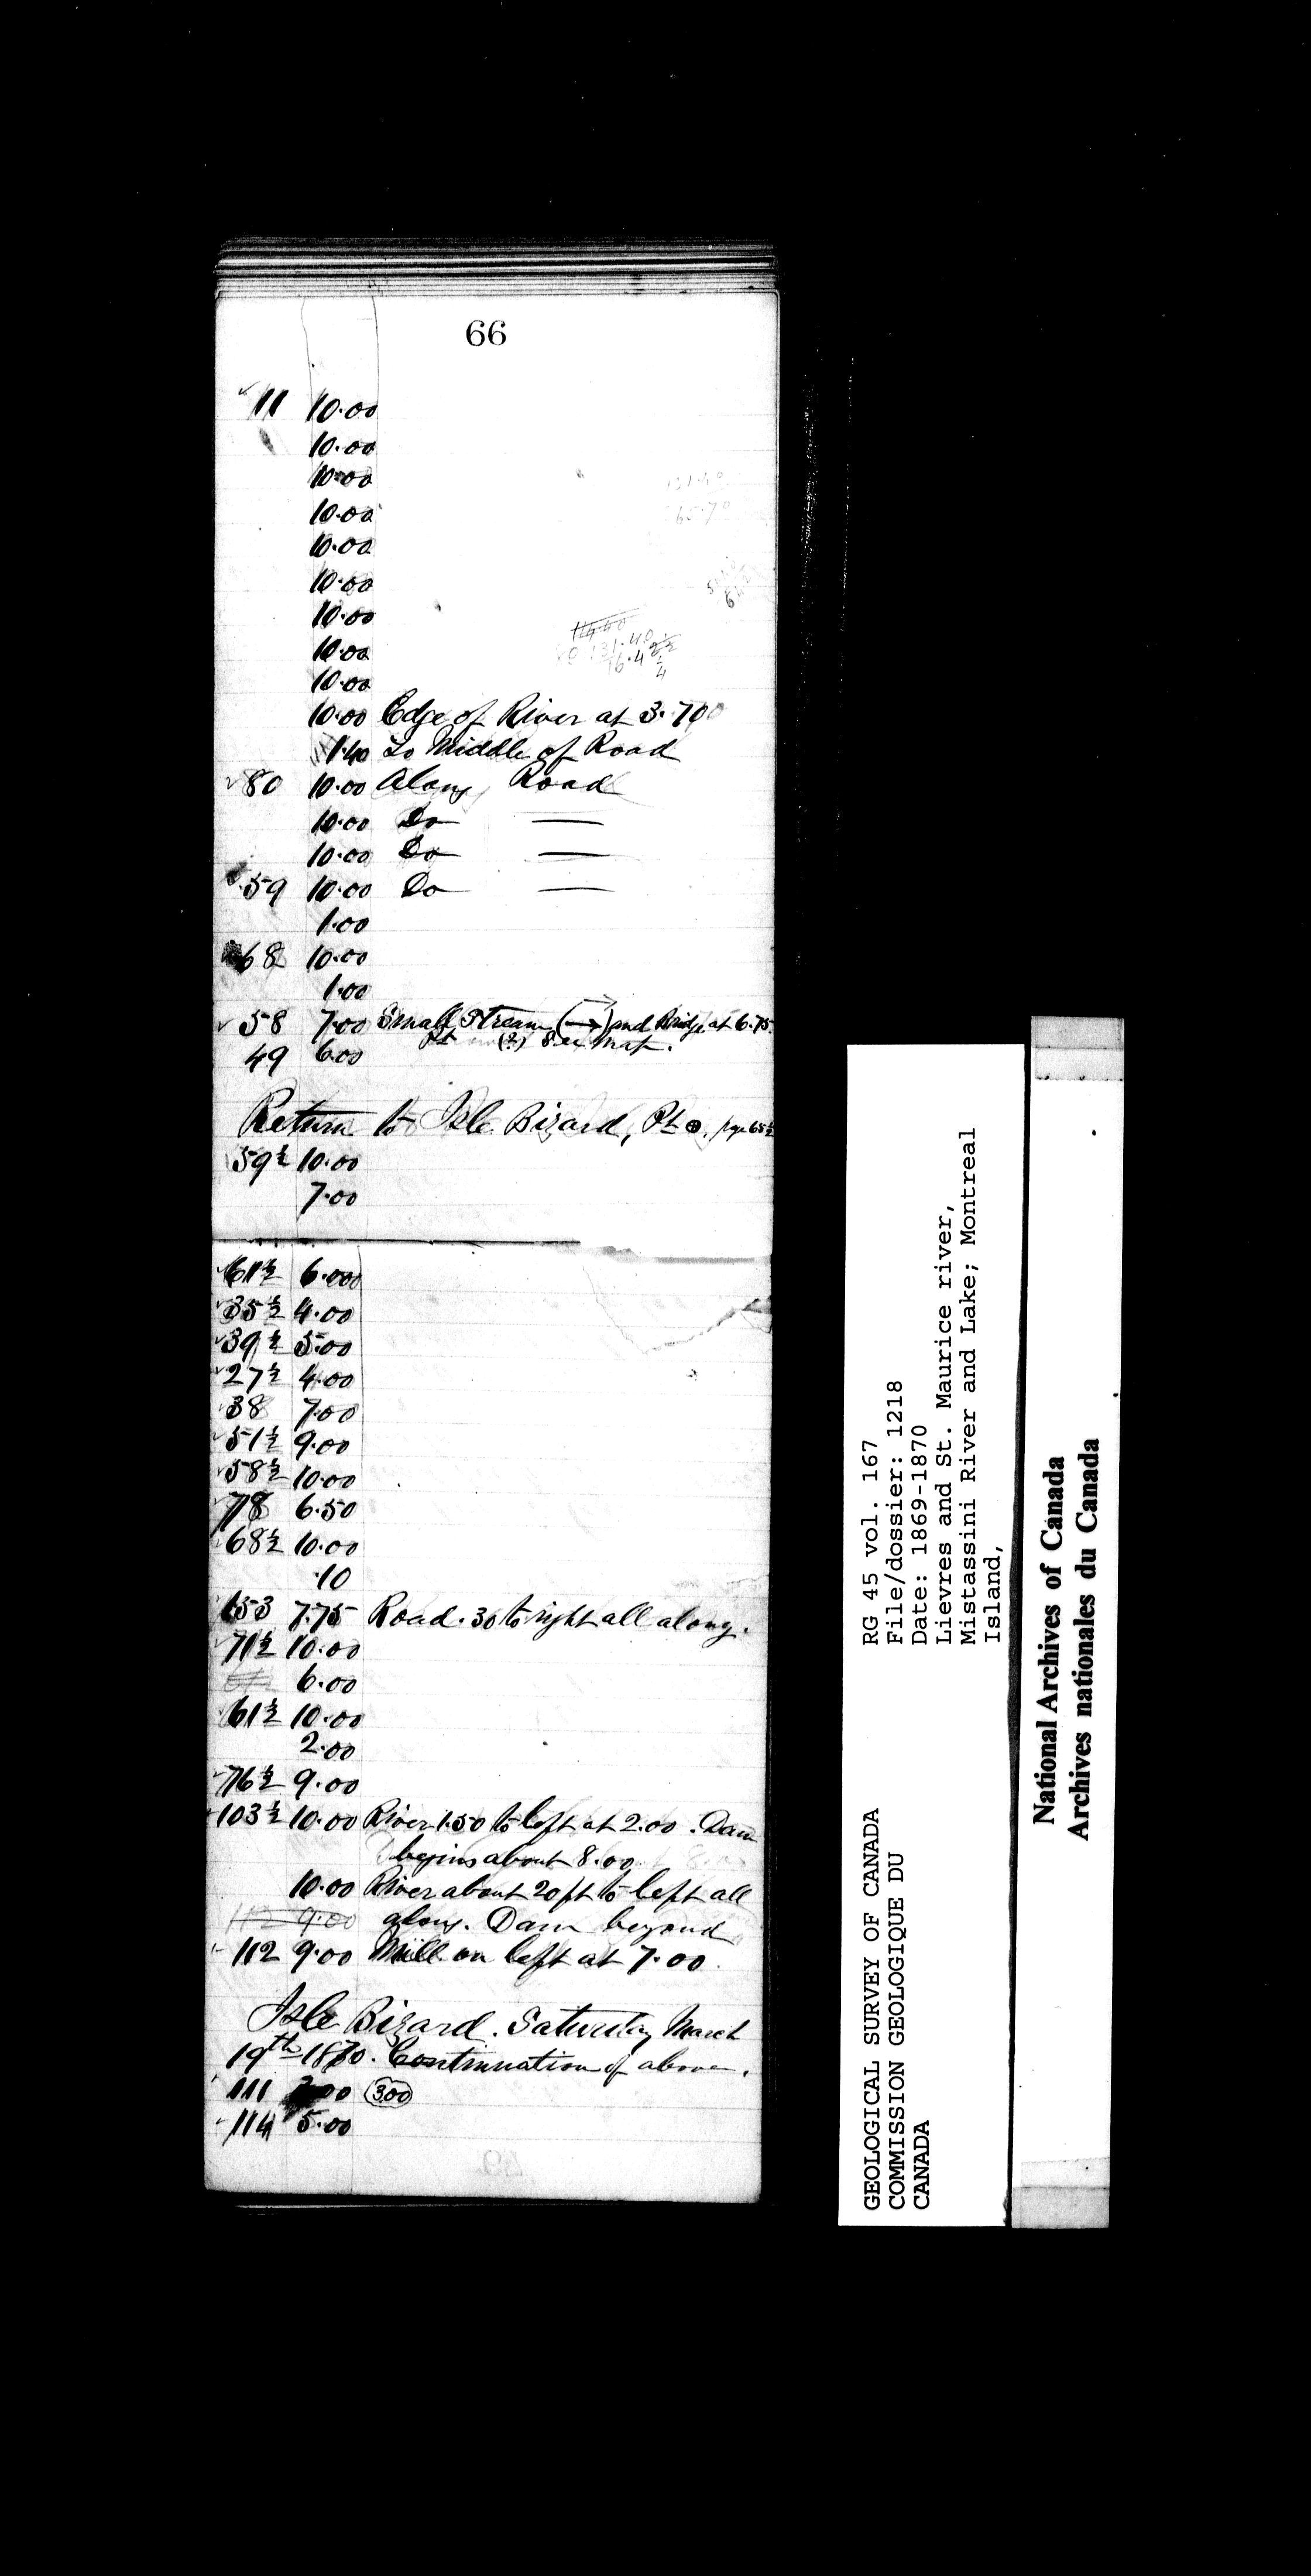 66
11 10.00
10.00
10.00
10.00
10.00
10.00
10.00
10.00
10.00
10.00 Edge of River at 3.70
1.40 To Middle of Road
80 10.00 Along Road
10.00 Do —
10.00 Do —
59 10.00 Do —
1.00
68 10.00
1.00
58 7.00 Small Stream (→) and Bridge at 6.75.
49 6.00 Pt (2) See Map.
Return to Isle Bizard, Pt page 65½
59½ 10.00
7.00
61½ 6.00
35½ 4.00
39½ 5.00
27½ 4.00
38 7.00
51½ 9.00
58½ 10.00
78 6.50
68½ 10.00
.10
53 7.75 Road .30 to right all along.
71½ 10.00
6.00
61½ 10.00
2.00
76½ 9.00
103½ 10.00 River 1.50 to left at 2.00. Dam
begins about 8.00
10.00 River about 20ft to left all
along. Dam beyond
112 9.00 Mill on left at 7.00.
Isle Bizard. Saturday March
19th 1870. Continuation of above.
111 3.00
114 5.00
GEOLOGICAL SURVEY OF CANADA
COMMISSION GEOLOGIQUE DU
CANADA
RG 45 vol. 167
File/dossier: 1218
Date: 1869-1870
Lievres and St. Maurice river,
Mistassini River and Lake; Montreal
Island,
National Archives of Canada
Archives nationales du Canada